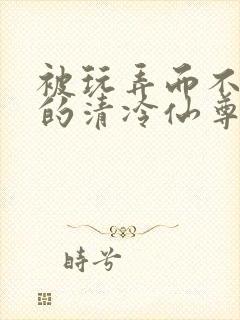 被玩弄而不
的清冷仙尊
時兮